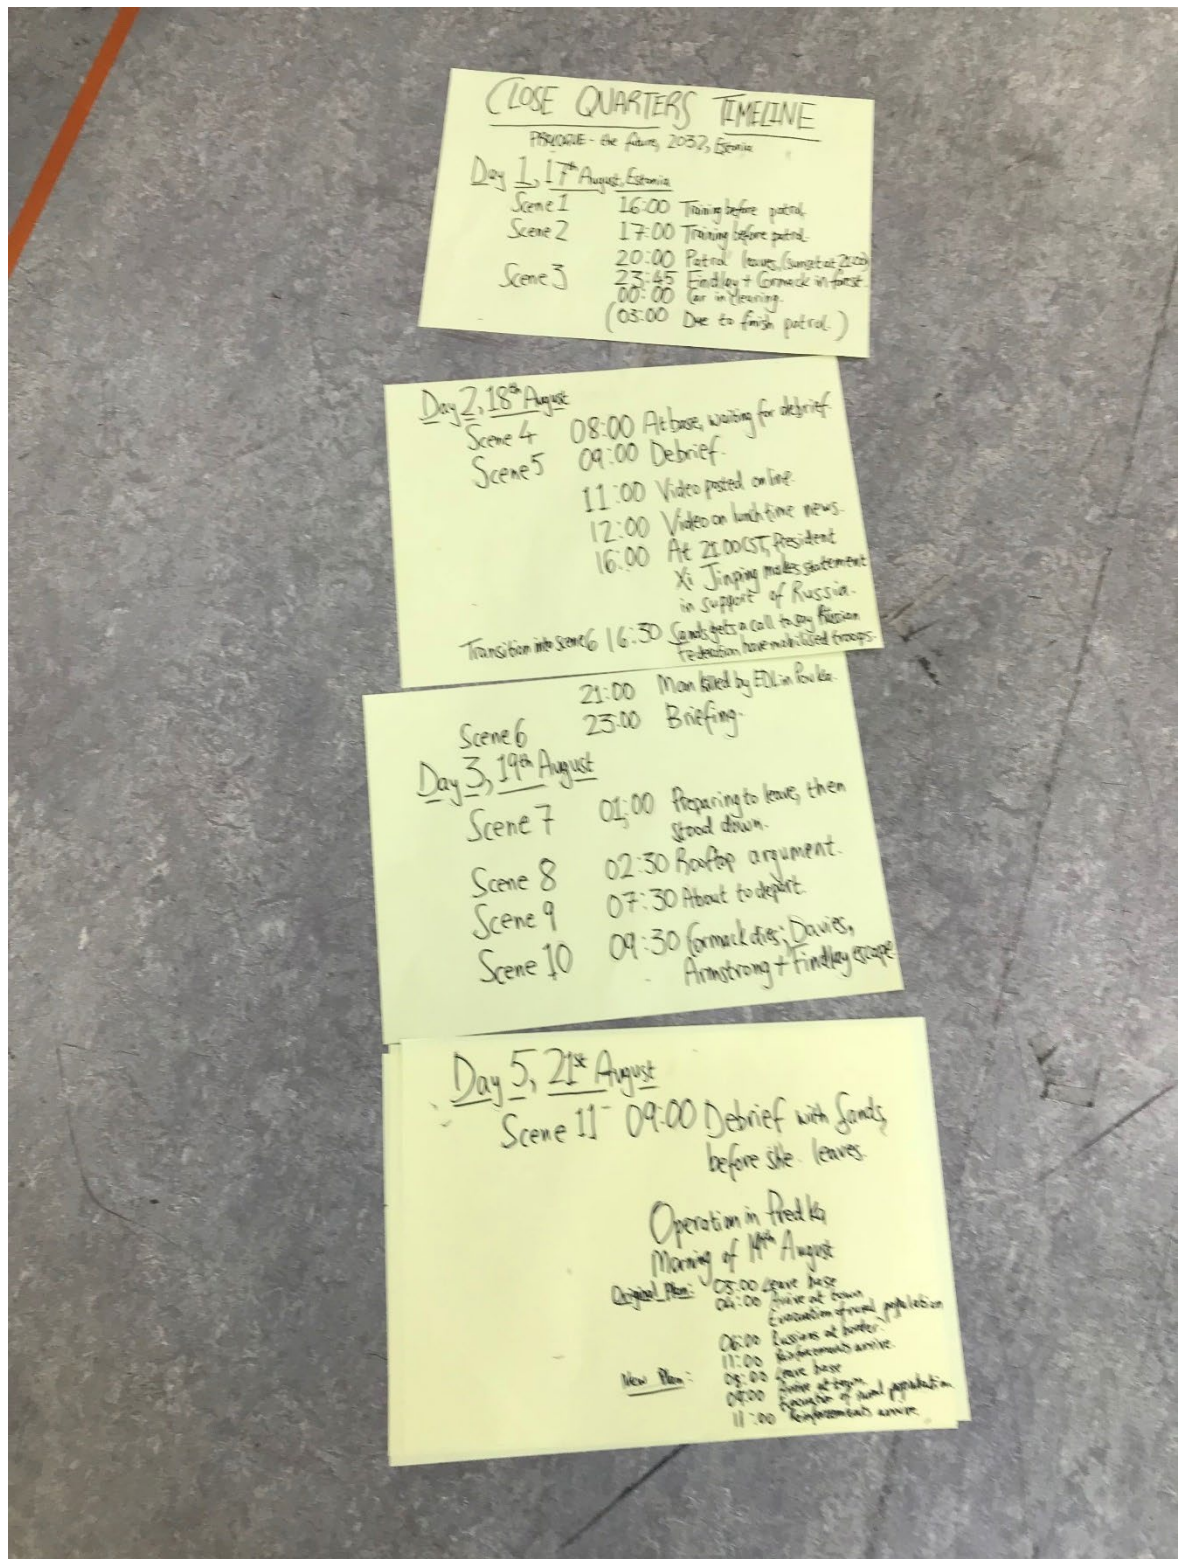 CLOSE QUARTERS TIMELINE
PROLOGUE - the future, 2032, Estonia
Day 1, 17th August, Estonia
Scene 1 16:00 Training before patrol.
Scene 2 17:00 Training before patrol.
20:00 Patrol leaves, (sunset at 21:00)
Scene 3 23:45 Findlay + Cormack in forest.
00:00 Car in clearing.
(03:00 Due to finish patrol.)
Day 2, 18th August
Scene 4 08:00 At base, waiting for debrief.
Scene 5 09:00 Debrief.
11:00 Video posted online.
12:00 Video on lunchtime news.
16:00 At 21:00 CST, President
Xi Jinping makes statement
in support of Russia.
Transition into scene 6 16:30 Sands gets a call to say Russian
Federation have mobilised troops.
21:00 Man killed by EDL in
Scene 6 23:00 Briefing.
Day 3, 19th August
Scene 7 01:00 Preparing to leave, then
stood down.
Scene 8 02:30 Rooftop argument.
Scene 9 07:30 About to depart.
Scene 10 09:30 Cormack dies; Davies,
Armstrong + Findlay escape.
Day 5, 21st August
Scene 11 - 09:00 Debrief with Sands,
before she leaves.
Operation in
Morning of 19th August
Original Plan: 03:00 Leave base
04:00 Arrive at town
Evacuation of rural population
06:00 Russians at border.
11:00 Reinforcements arrive.
New Plan: 08:00 Leave base
09:00 Arrive at town.
Evacuation of rural population.
11:00 Reinforcements arrive.